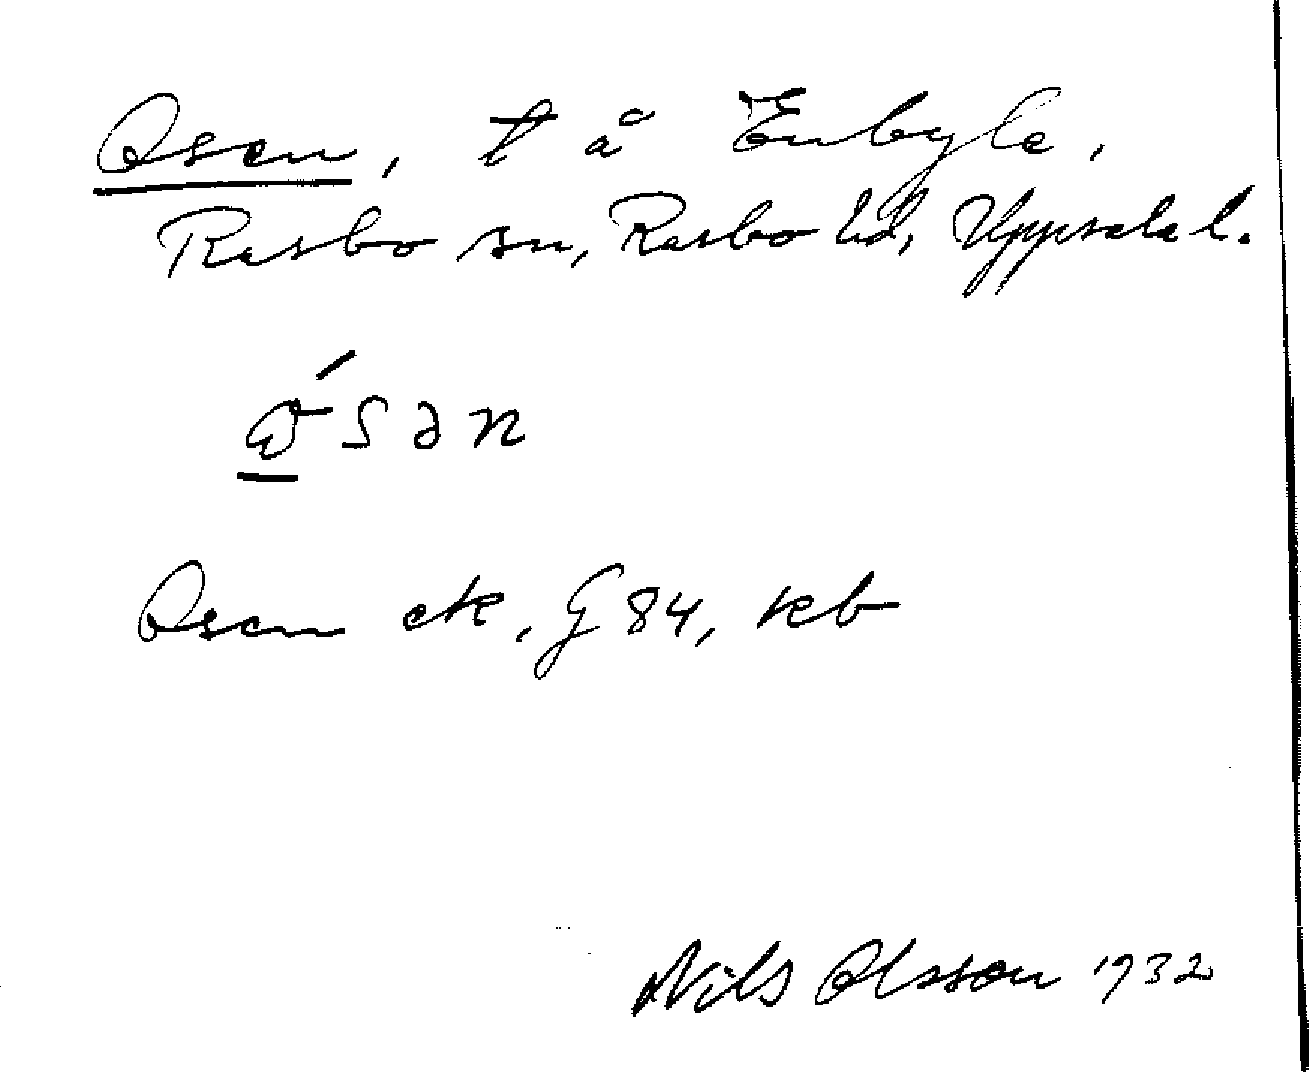 Osen, t å Enbyle,
Rasbo sn, Rasbo hd, Uppsala l.
Osen ek, G 84, kb
Nils Olsson 1932